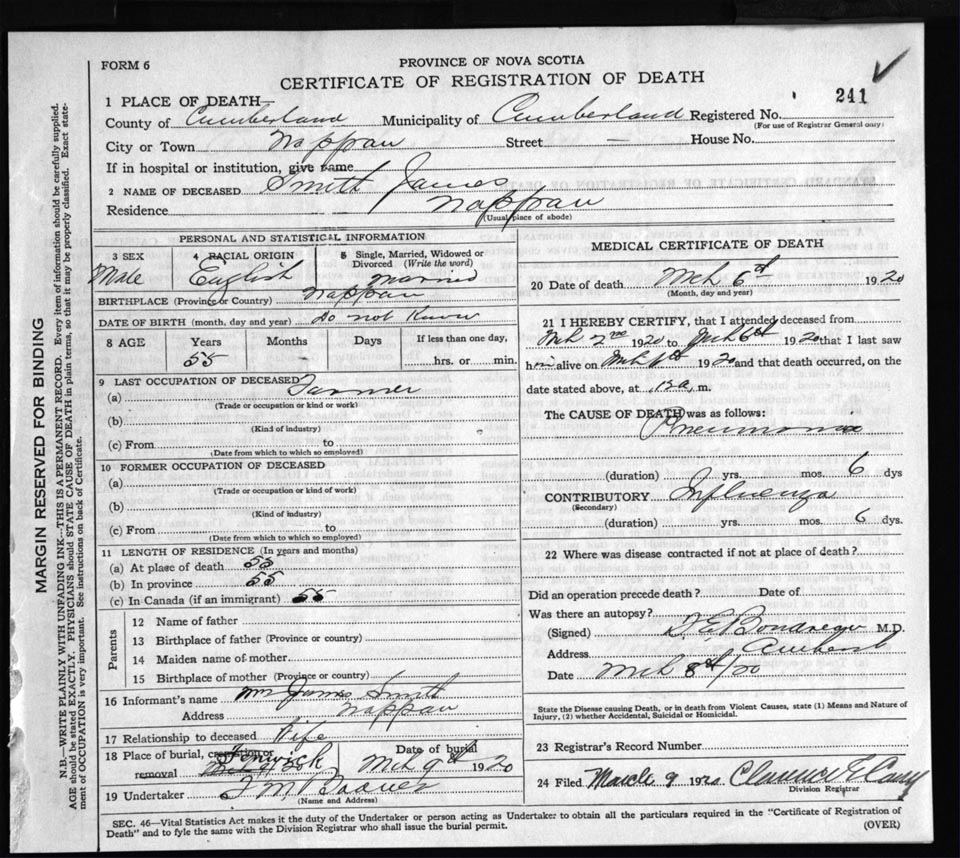 FORM 6
PROVINCE OF NOVA SCOTIA
CERTIFICATE OF REGISTRATION OF DEATH
241
1 PLACE OF DEATH—
County of Cumberland Municipality of Cumberland Registered No.
(For use of Registrar General only)
City or Town Nappan Street — House No.
If in hospital or institution, give name
2 NAME OF DECEASED Smith James
Residence Nappan
(Usual place of abode)
PERSONAL AND STATISTICAL INFORMATION
3 SEX Male
4 RACIAL ORIGIN English
5 Single, Married, Widowed or Divorced (Write the word) Married
BIRTHPLACE (Province or Country) Nappan
DATE OF BIRTH (month, day and year) Do not know
8 AGE Years 55 Months Days If less than one day, hrs. or min.
9 LAST OCCUPATION OF DECEASED
(a)
(Trade or occupation or kind or work)
(b)
(Kind of industry)
(c) From to
(Date from which to which so employed)
10 FORMER OCCUPATION OF DECEASED
(a)
(Trade or occupation or kind of work)
(b)
(Kind of industry)
(c) From to
(Date from which to which so employed)
11 LENGTH OF RESIDENCE (In years and months)
(a) At place of death 55
(b) In province 55
(c) In Canada (if an immigrant) 55
Parents
12 Name of father
13 Birthplace of father (Province or country)
14 Maiden name of mother
15 Birthplace of mother (Province or country)
16 Informant's name Mrs James Smith
Address Nappan
17 Relationship to deceased Wife
18 Place of burial, cremation or removal Fenwick Date of burial Mch 9th 1920
19 Undertaker
(Name and Address)
MEDICAL CERTIFICATE OF DEATH
20 Date of death Mch 6th 1920
(Month, day and year)
21 I HEREBY CERTIFY, that I attended deceased from
Mch 2nd 1920 to Mch 6th 1920 that I last saw
him alive on Mch 1920 and that death occurred, on the
date stated above, at m.
The CAUSE OF DEATH was as follows:
Pneumonia
(duration) yrs. mos. 6 dys
CONTRIBUTORY Influenza
(Secondary)
(duration) yrs. mos. 6 dys.
22 Where was disease contracted if not at place of death?
Did an operation precede death? Date of
Was there an autopsy?
(Signed) M.D.
Address Amherst
Date Mch 8th/20
State the Disease causing Death, or in death from Violent Causes, state (1) Means and Nature of
Injury, (2) whether Accidental, Suicidal or Homicidal.
23 Registrar's Record Number
24 Filed March 9 1920 Clarence E
Division Registrar
SEC. 46—Vital Statistics Act makes it the duty of the Undertaker or person acting as Undertaker to obtain all the particulars required in the "Certificate of Registration of
Death" and to fyle the same with the Division Registrar who shall issue the burial permit.
(OVER)
MARGIN RESERVED FOR BINDING
N.B.—WRITE PLAINLY WITH UNFADING INK—THIS IS A PERMANENT RECORD. Every item of information should be carefully supplied.
AGE should be stated EXACTLY. PHYSICIANS should STATE CAUSE OF DEATH in plain terms, so that it may be properly classified. Exact state-
ment of OCCUPATION is very important. See instructions on back of Certificate.